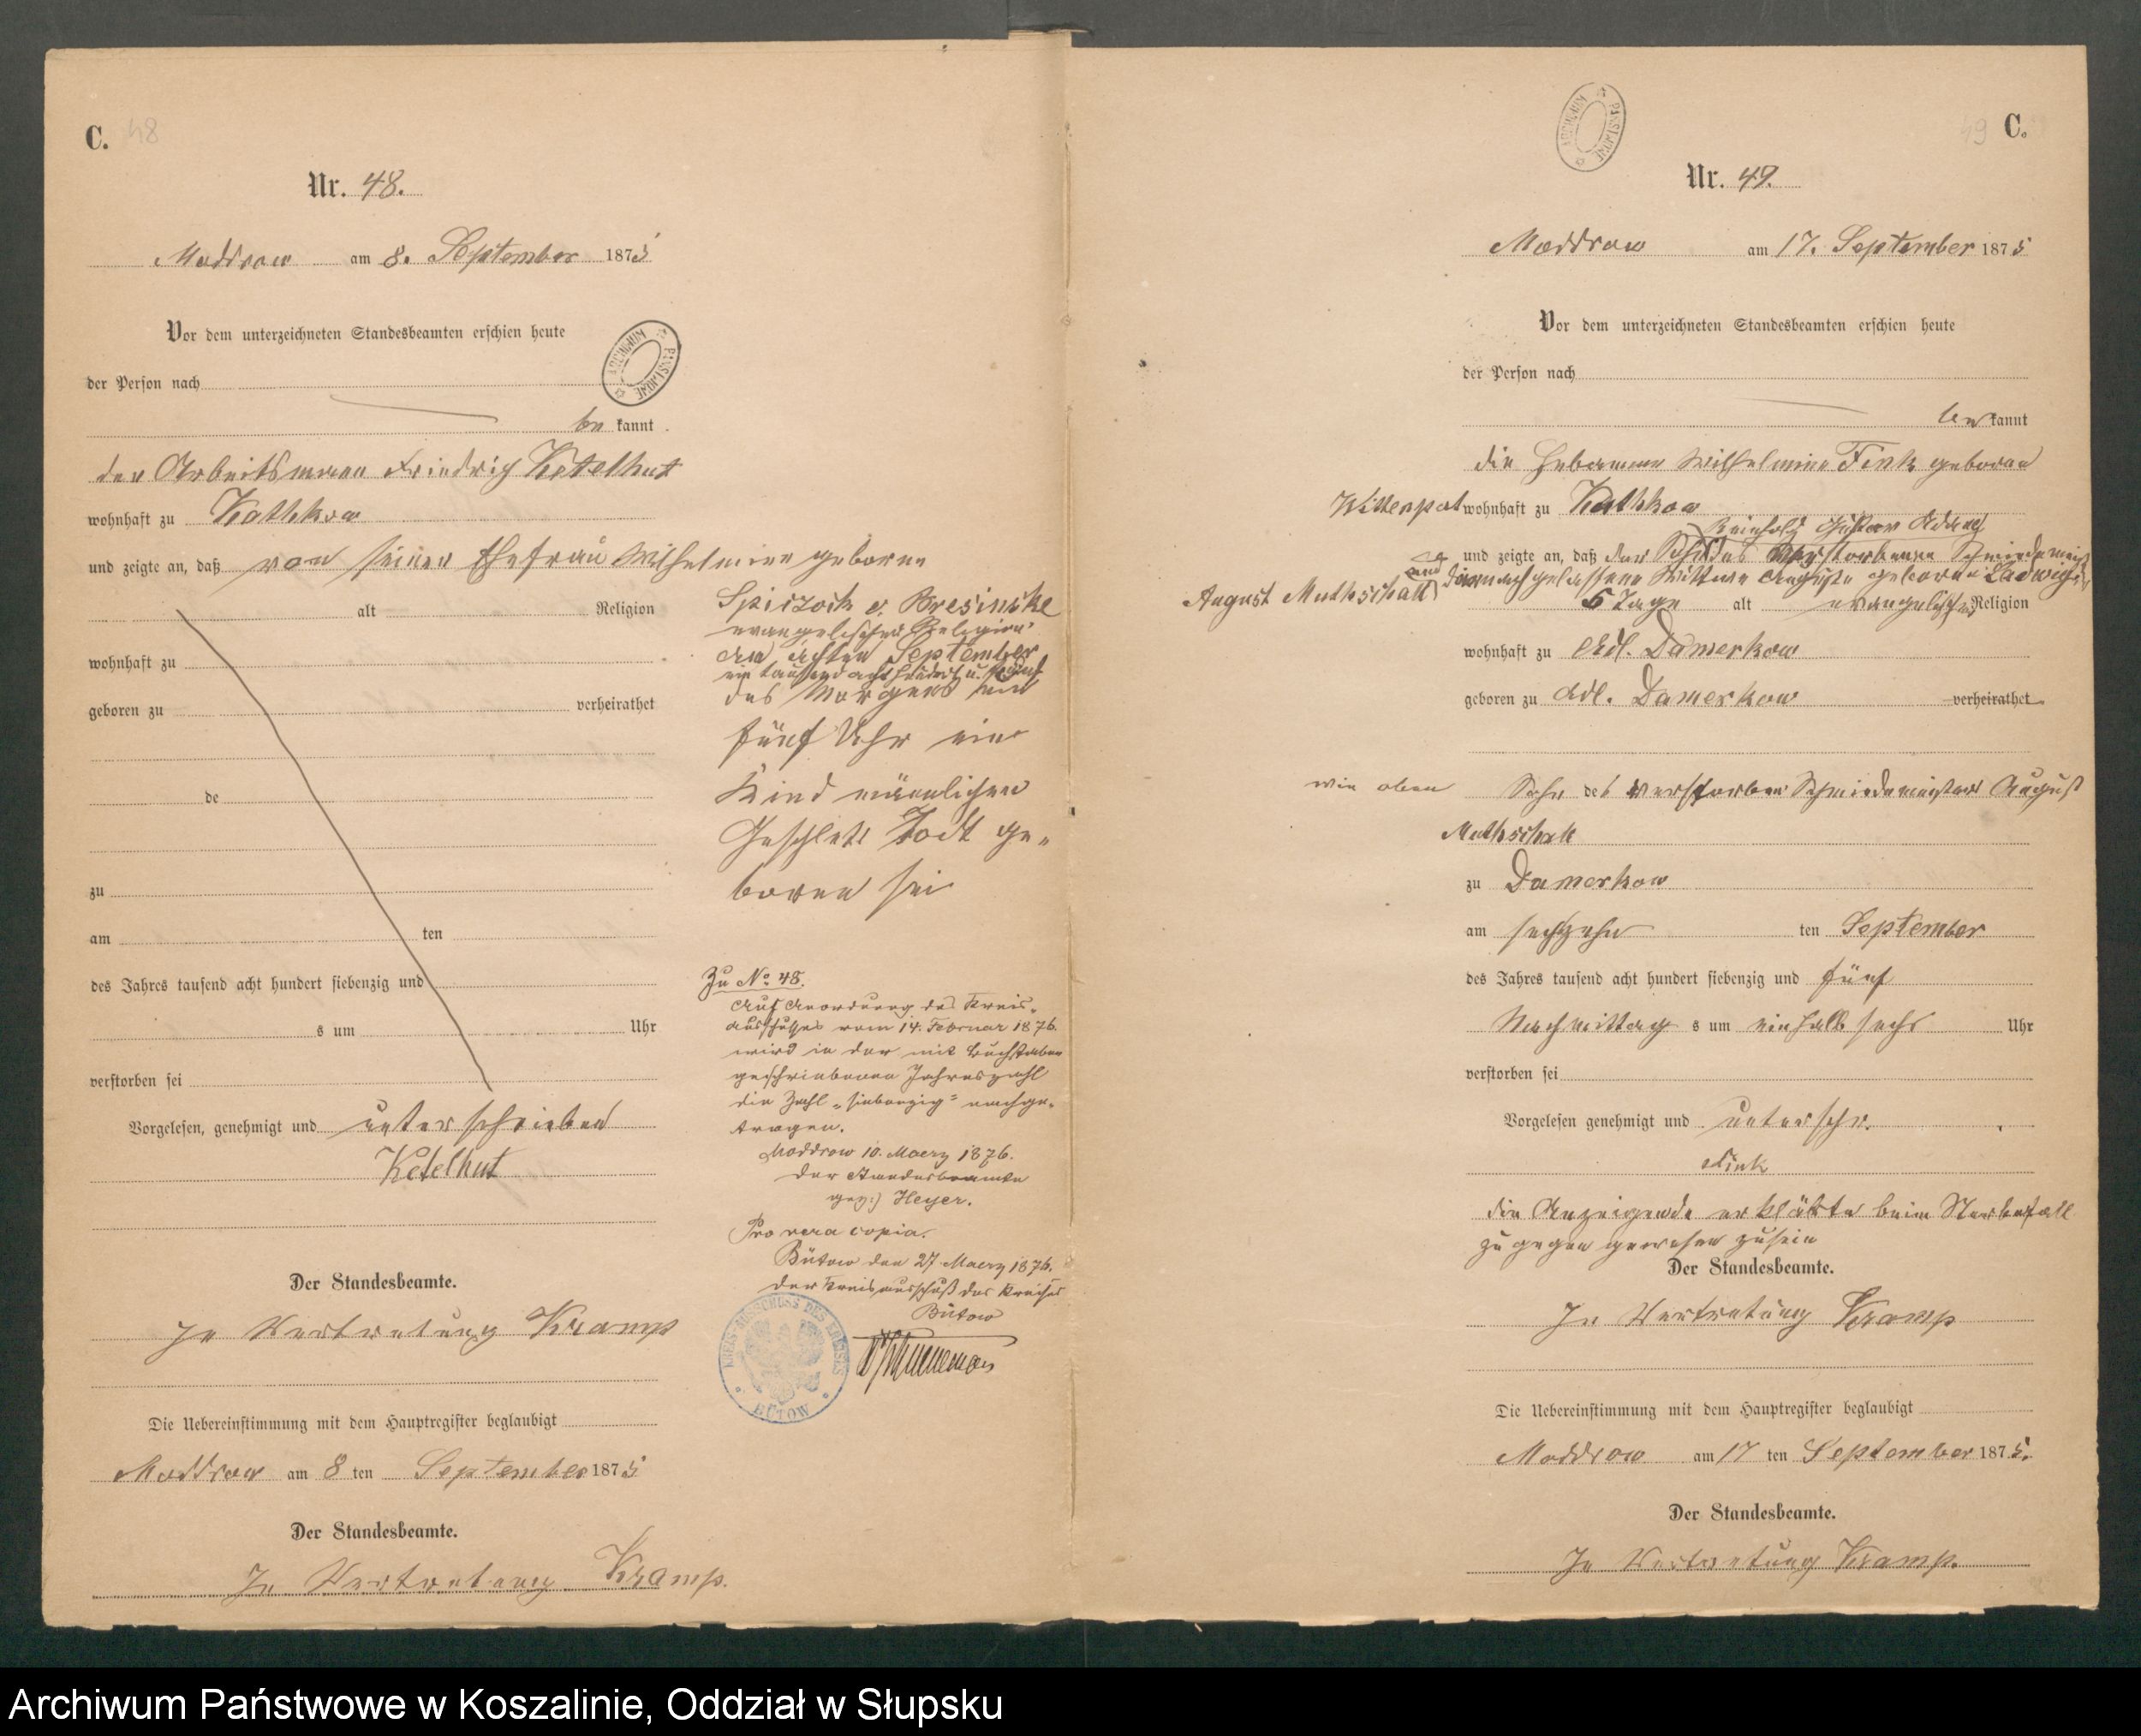 C. 48
Nr. 48.
Moddrow am 8. September 1875
Vor dem unterzeichneten Standesbeamten erschien heute
der Person nach
be kannt
der Arbeitsmann Friedrich Ketelhut
wohnhaft zu Kathkow
und zeigte an, daß von seiner Ehefrau Wilhelmine geborene
alt Religion
wohnhaft zu
geboren zu verheirathet
de
zu
am ten
des Jahres tausend acht hundert siebenzig und
s um Uhr
verstorben sei
Vorgelesen, genehmigt und unterschrieben
Ketelhut
Der Standesbeamte.
In Vertretung Kramp
Die Uebereinstimmung mit dem Hauptregister beglaubigt
Moddrow am 8 ten September 1875
Der Standesbeamte.
In Vertretung Kramp.
Spiczock v. Bresinske
evangelischer Religion
am achten September
ein tausend acht hundert u. fünf
des Morgens um
fünf Uhr ein
Kind männlichen
Geschlechts Todt ge-
boren sei
Zu No. 48.
Auf Anordnung des Kreis-
ausschusses vom 14. Februar 1876
wird in der mit Buchstaben
geschriebenen Jahreszahl
die Zahl "siebenzig" nachge-
tragen.
Moddrow 10. Maerz 1876.
Der Standesbeamte
gez:) Heyer.
Pro vera copia.
Bütow den 27 Maerz 1876.
Der Kreisausschuß des Kreises
Bütow
KREIS-AUSSCHUSS DES KREISES
BÜTOW
ARCHIWUM PAŃSTWOWE
C. 49
Nr. 49.
Moddrow am 17. September 1875
Vor dem unterzeichneten Standesbeamten erschien heute
der Person nach
be kannt
die Hebamme Wilhelmine Fink geborene
Wittenpat wohnhaft zu Kathkow
Reinhold Gustav
und zeigte an, daß der Sohn des verstorbenen Schmiedemeister
August Muthschall und dernachgelassene Wittwe Auguste geborene Ladwig
5 Tage alt evangelischer Religion
wohnhaft zu Adl. Damerkow
geboren zu Adl. Damerkow verheirathet
wie oben Sohn des verstorben Schmiedemeister August
Muthschall
zu Damerkow
am sechzehn ten September
des Jahres tausend acht hundert siebenzig und fünf
Nachmittag s um einhalb sechs Uhr
verstorben sei
Vorgelesen genehmigt und unterschr.
Fink
die Anzeigende erklärte beim Sterbefall
zu gegen gewesen zu sein
Der Standesbeamte.
In Vertretung Kramp
Die Uebereinstimmung mit dem Hauptregister beglaubigt
Moddrow am 17 ten September 1875.
Der Standesbeamte.
In Vertretung Kramp.
ARCHIWUM PAŃSTWOWE
Archiwum Państwowe w Koszalinie, Oddział w Słupsku